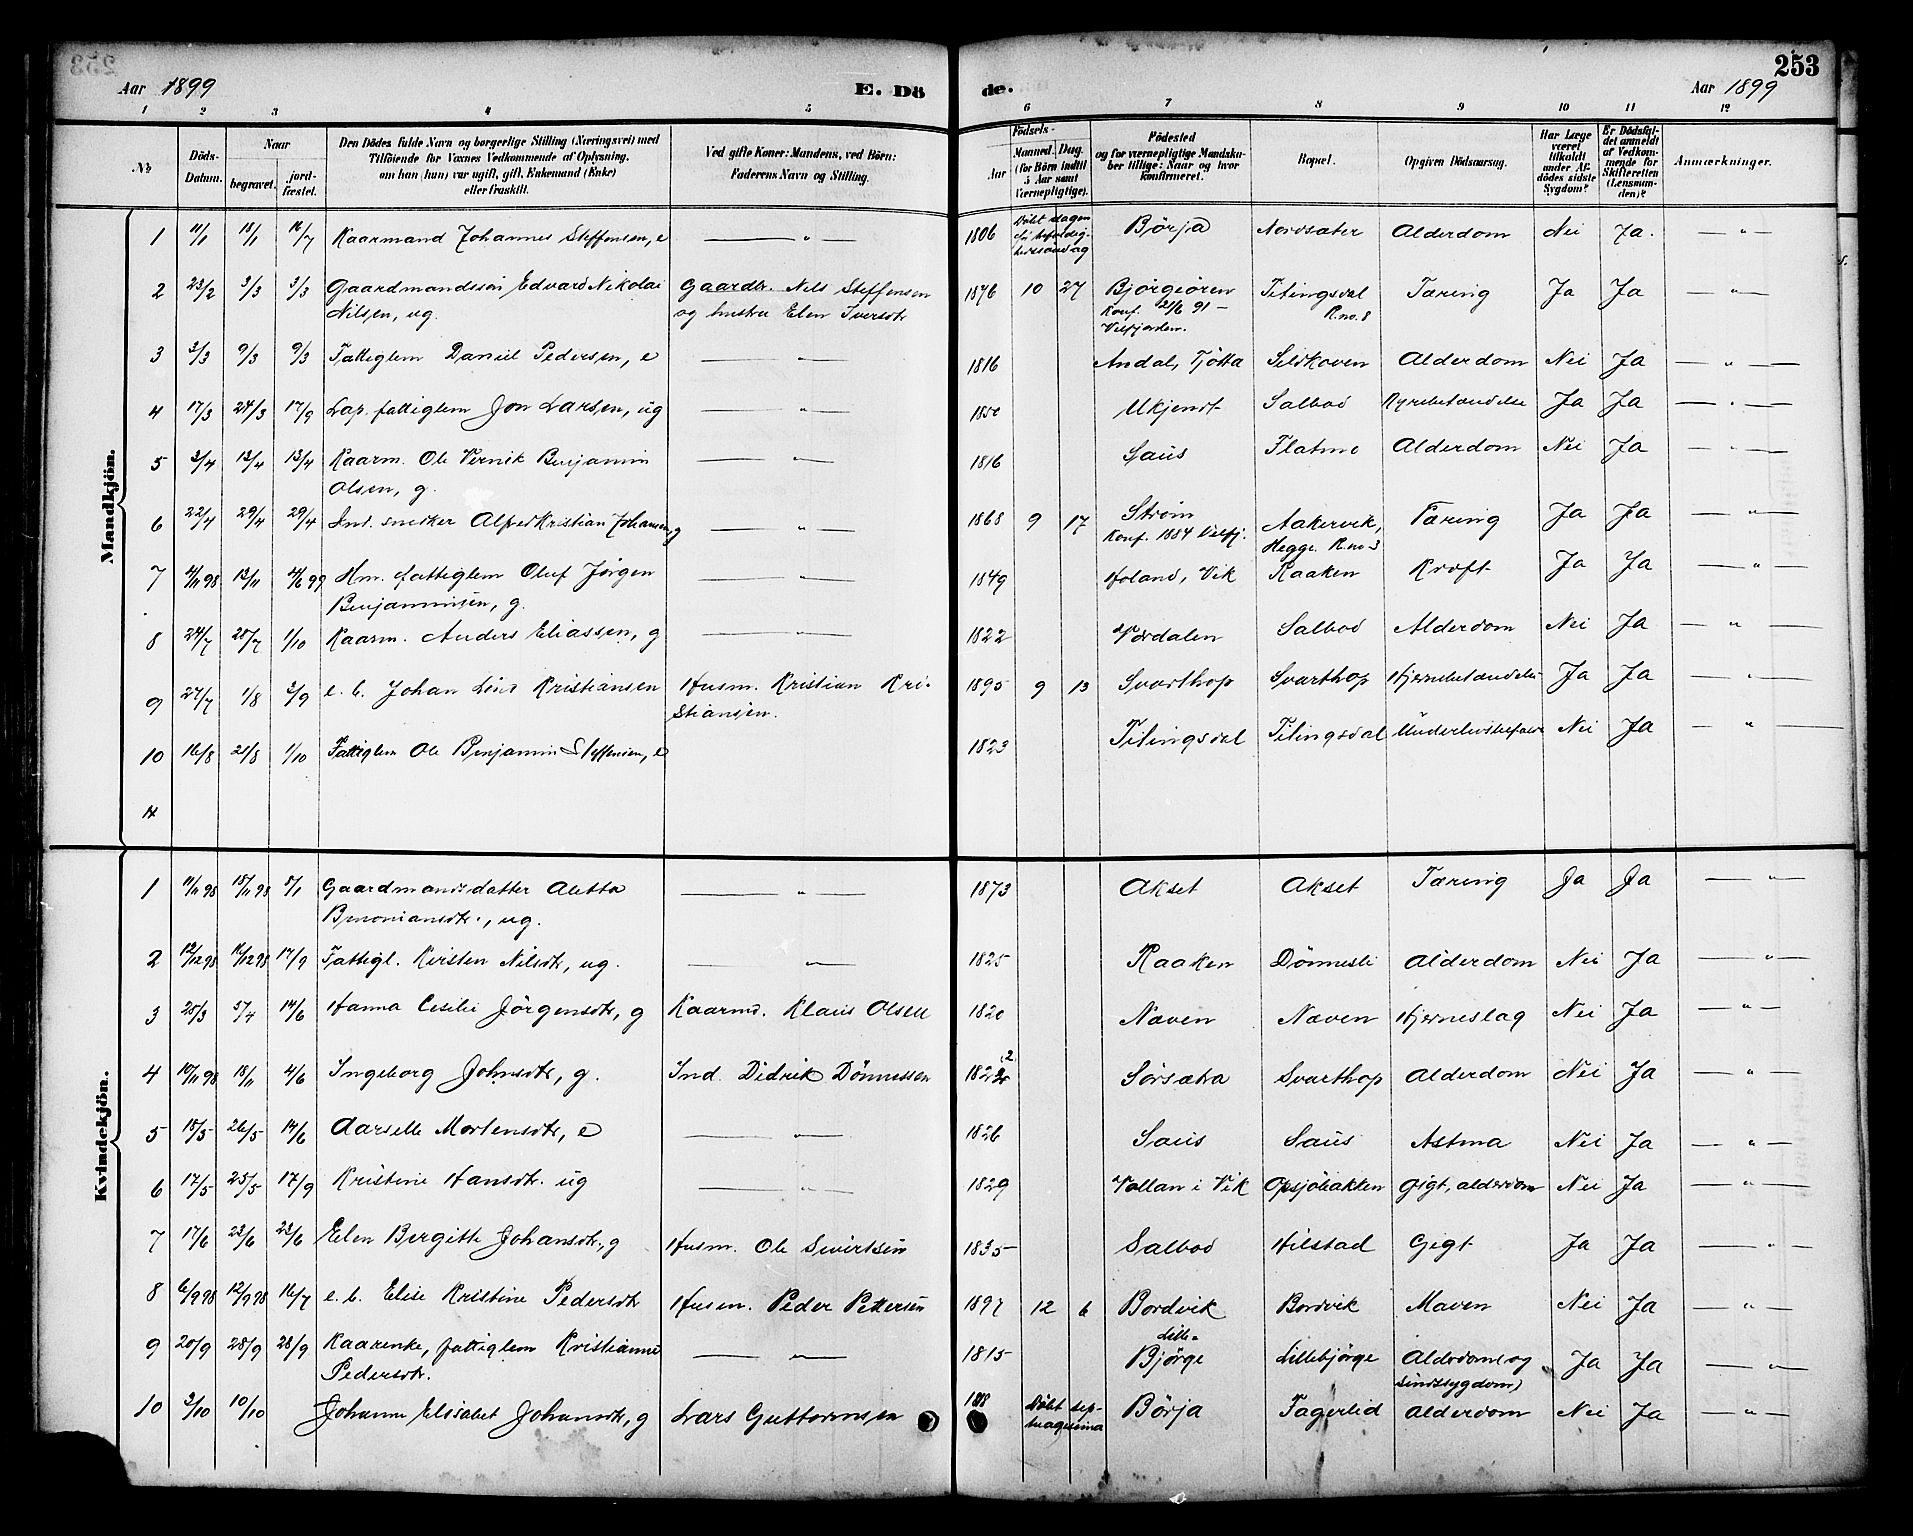 253
Aar 1899 E. Dö de. Aar 1899
1 2 3 4 5 6 7 8 9 10 11 12
No Döds-Datum. Naar begravet. jordfæstet. Den Dödes fulde Navn og borgerlige Stilling (Næringsvei) med Tilföiende for Voxnes Vedkommende af Oplysning, om han (hun) var ugift, gift, Enkemand (Enke) eller fraskilt. Ved gifte Koner: Mandens, ved Börn: Faderens Navn og Stilling. Födsels- Aar Maaned. Dag. (for Börn indtil 5 Aar samt Værnepligtige). Födested og for værnepligtige Mandskaber tillige: Naar og hvor konfirmeret. Bopæl. Opgiven Dödsaarsag. Har Læge været tilkaldt under Afdödes sidste Sygdom? Er Dödsfaldet anmeldt af Vedkommende for Skifteretten (Lensmanden)? Anmærkninger.
Mandkjön.
1 11/1 18/1 16/7 Kaarmand Johannes Steffensen, e — " — 1806 Døbt dagen Børja Nordsæter Alderdom Nei Ja. — " —
2 23/2 3/3 3/3 Gaardmandssøn Edvard Nikolai Gaardbr. Nils Steffensen 1876 10 27 Bjørgeören Tilingsdal Tæring Ja Ja — " —
Nilsen, ug. og hustru Elen Iversdtr Konf. 21/6 91 – R.no. 8
Velfjorden.
3 3/3 9/3 9/3 Fattiglem Daniel Pedersen, e — " — 1816 Andal, Tjötta Sildkoven Alderdom Nei Ja — " —
4 17/3 24/3 17/9 Lap. fattiglem Jon Larsen, ug — " — 1850 Ukjendt Salbod Nyrebetændelse Ja Ja — " —
5 3/4 13/4 13/4 Kaarm. Ole Vernik Benjamin — " — 1816 Saus Flatmo Alderdom Nei Ja — " —
Olsen, g.
6 22/4 29/4 29/4 Ind. snedker Alfred Kristian Johansen, g — " — 1868 9 17 Strøm Aakervik, Tæring Ja Ja — " —
Konf. 1884 Velfj. Hegge. R.no 3
7 4/11 98 13/11 4/6 99 Hm. fattiglem Oluf Jørgen — " — 1849 Holand, Vik Raaken Kræft Ja Ja — " —
Benjaminsen, g.
8 24/7 28/7 1/10 Kaarm. Anders Eliassen, g — " — 1822 Værdalen Salbod Alderdom Nei Ja — " —
9 27/7 1/8 3/9 e. b. Johan Lind Kristiansen Husm. Kristian Kri- 1895 9 13 Svarthop Svarthop Hjernebetændelse Ja Ja — " —
stiansen.
10 16/8 21/8 1/10 Fattiglem Ole Benjamin Steffensen, e 1823 Tilingsdal Tilingsdal Nei Ja — " —
Kvindekjön.
1 11/11 98 18/11 98 8/1 Gaardmandsdatter Aletta — " — 1873 Akset Akset Tæring Ja Ja — " —
Benoniansdtr., ug.
2 12/12 98 16/12 98 17/9 Fattigl. Kirsten Nilsdtr, ug. — " — 1825 Raaken Dönnesli Alderdom Nei Ja — " —
3 28/3 5/4 14/6 Hanna Cesilie Jörgensdtr, g Kaarmd. Klaus Olsen 1820 Næven Næven Hjerneslag Nei Ja — " —
4 10/11 98 18/11 4/6 Ingeborg Johnsdtr, g. Ind. Didrik Dönnessen 1822 Sørsætra Svarthop Alderdom Nei Ja — " —
5 18/5 26/5 14/6 Aarselle Mortensdtr, e — " — 1826 Saus Saus Astma Nei Ja — " —
6 17/5 25/5 17/9 Kristine Hansdtr. ug — " — 1829 Vollan i Vik Opsjöbakken Gigt, alderdom Nei Ja — " —
7 17/6 23/6 23/6 Elen Bergitte Johansdtr, g Husm. Ole Sivertsen 1835 Salbod Hilstad Gigt Ja Ja — " —
8 6/9 98 12/9 98 16/7 e. b. Elise Kristine Pedersdtr Husm. Peder Pettersen 1897 12 6 Bordvik Bordvik Maven Nei Ja — " —
9 20/9 28/9 28/9 Kaarenke, fattiglem Kristianne — " — 1815 Lille- Bjørge Lillebjörge Alderdom (og Ja Ja — " —
Pedersdtr. sindssygdom)
10 3/10 10/10 Johanne Elisabet Johansdtr, g Lars Guttormsen Døbt septuagesima Børja Fagerlid Alderdom Nei Ja — " —